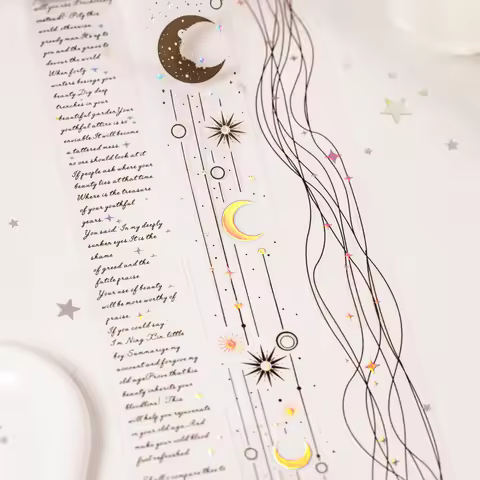 instead? Pity this
world otherwise
greedy man. It's up to
you and the grave to
devour the world
When forty
winters besiege your
beauty Dig deep
trenches in your
beautiful garden. Your
youthful attire is so
enviable. It will become
a tattered mess
no one should look at it
If people ask where your
beauty lies at that time
Where is the treasure
of your youthful
years.
You said: In my deeply
sunken eyes. It is the
shame
of greed and the
futile praise
Your use of beauty
will be more worthy of
praise
If you could say
I'm Ning Xin little
boy Summarize my
account and forgive my
old age. Prove that his
beauty inherits your
bloodline! This
will help you rejuvenate
in your old age. And
make your cold blood
feel refreshed
Shall I compare thee to